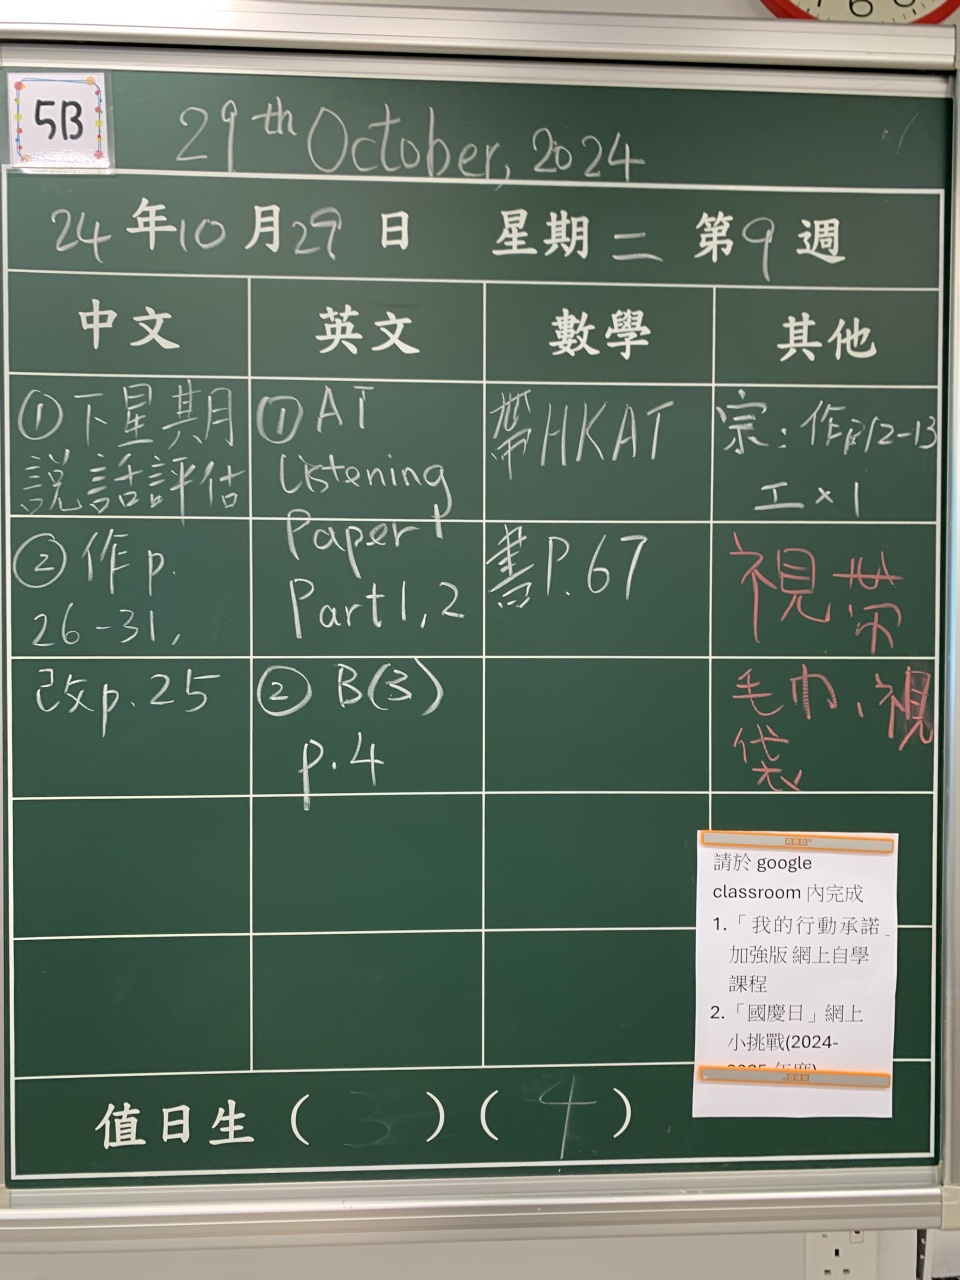 5B
29th October, 2024
24年10月29日 星期二 第9週
中文 英文 數學 其他
①下星期
說話評估
②作p.
26-31,
改p.25
①AT
Listening
Paper 1
Part 1, 2
②B(3)
p.4
帶HKAT
書P.67
宗:作p.12-13
工x1
視帶
毛巾、視
袋
請於 google
classroom 內完成
1.「我的行動承諾
加強版 網上自學
課程
2.「國慶日」網上
小挑戰(2024-
2025 年度)
值日生(3)(4)